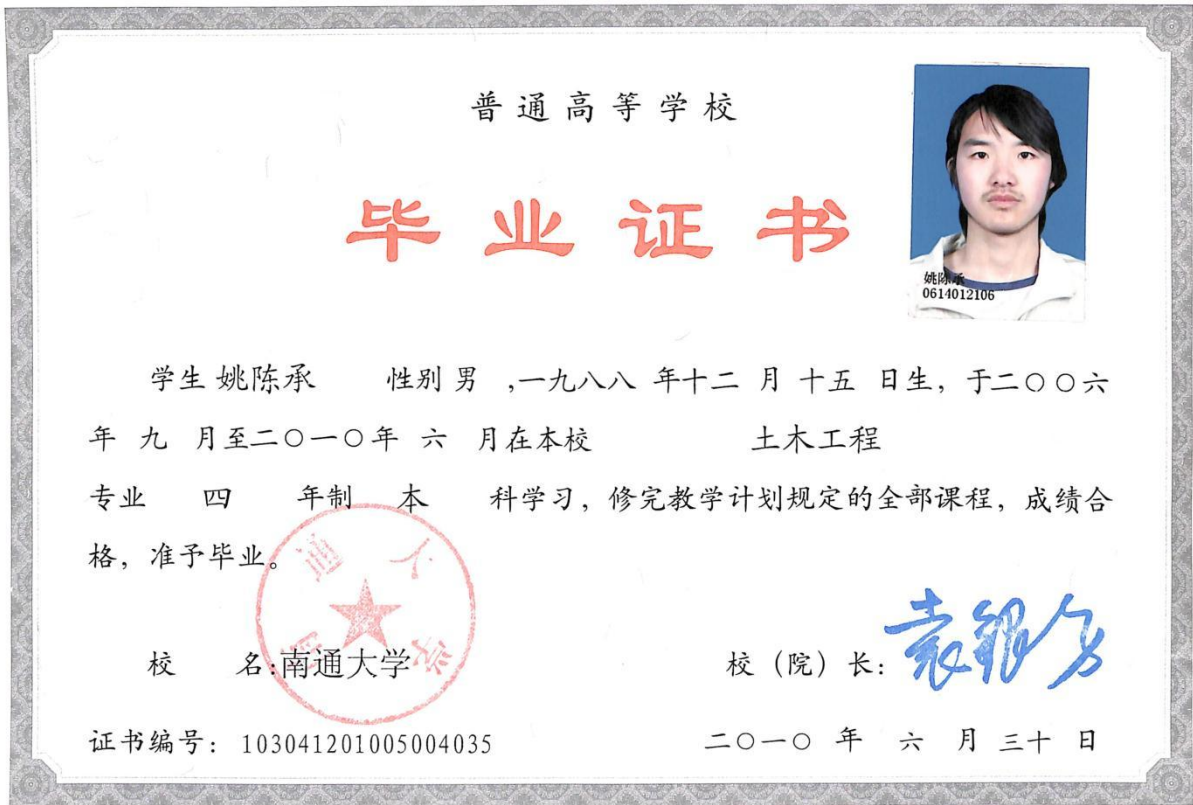 普通高等学校
毕业证书
姚陈承
0614012106
学生 姚陈承 性别 男 ,一九八八 年十二 月 十五 日生，于二〇〇六
年 九 月至二〇一〇年 六 月在本校 土木工程
专业 四 年制 本 科学习，修完教学计划规定的全部课程，成绩合
格，准予毕业。
南通大学
校 名:南通大学
校（院）长：袁银男
证书编号：103041201005004035
二〇一〇 年 六 月 三十 日